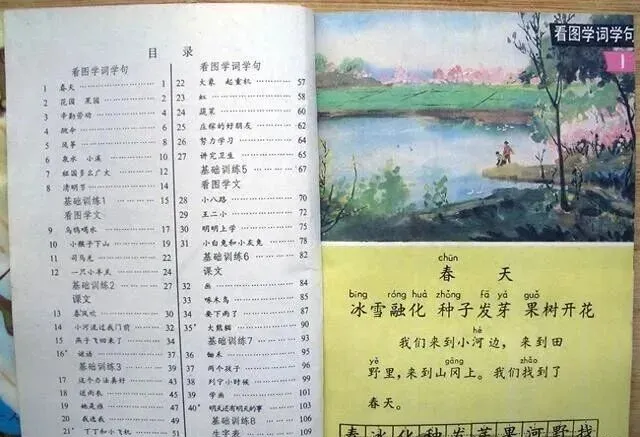 目 录
看图学词学句
1 春天 1
2 花园 果园 2
3 辛勤劳动 4
4 跳伞 6
5 风筝 8
6 泉水 小溪 10
7 祖国多么广大 12
8 清明节 14
基础训练1 15
看图学文
9 乌鸦喝水 18
10 小猴子下山 20
11 司马光 22
12 一只小羊羔 24
基础训练2 27
课文
13 春风吹 30
14 小河流过我门前 32
15 燕子飞回来了 34
16* 谜语 37
基础训练3 39
17 这个办法真好 42
18 送雨衣 44
19 她是谁 46
20 我选我 48
21* 丁丁和小飞机
22 大象 起重机 57
23 虹 58
24 蔬菜 60
25 庄稼的好朋友 62
26 努力学习 64
27 讲究卫生 65
基础训练5 67
看图学文
28 小八路 70
29 王二小 72
30 明明上学 74
31 小白兔和小灰兔 78
基础训练6 82
课文
32 画 84
33 啄木鸟 85
34 要下雨了 87
35* 大熊猫 90
基础训练7 93
36 锄禾 96
37 两个孩子 97
38 列宁小时候 99
39 学画 101
40* 明天还有明天的事 103
基础训练8 106
生字表 109
看图学词学句
1
chūn
春 天
bīng róng huà zhǒng fā yá guǒ
冰雪融化 种子发芽 果树开花
hé
我们来到小河边，来到田
yě gāng zhǎo
野里，来到山冈上。我们找到了
春天。
春冰化种发芽果河野找